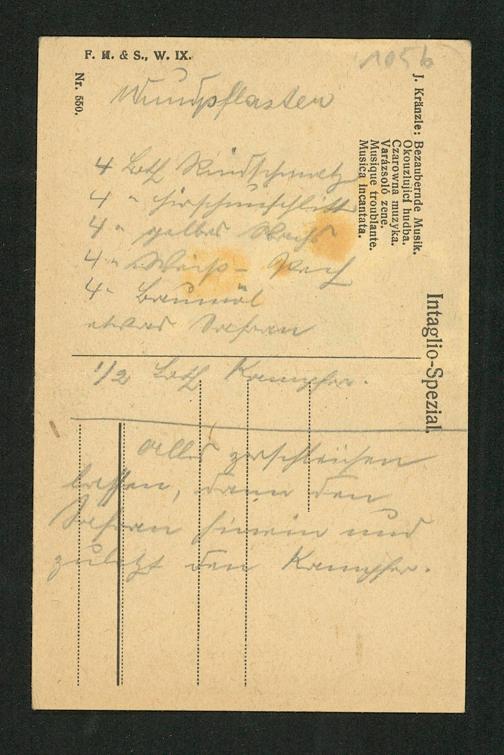 F. H. & S., W. IX.
Nr. 550.
1056
J. Kränzle: Bezaubernde Musik.
Okouzlující hudba.
Czarowna muzyka.
Varázsoló zene.
Musique troublante.
Musica incantata.
Intaglio-Spezial.
Wundpflaster
4 Loth Rindschmalz
4 " Hirschunschlitt
4 " gelbes Wachs
4 " Weiss- Pech
4 " Baumöl
etwas Safran
1/2 Loth Kampfer.
Alles zerschleichen
lassen, dann den
Safran hinein und
zuletzt den Kampfer.